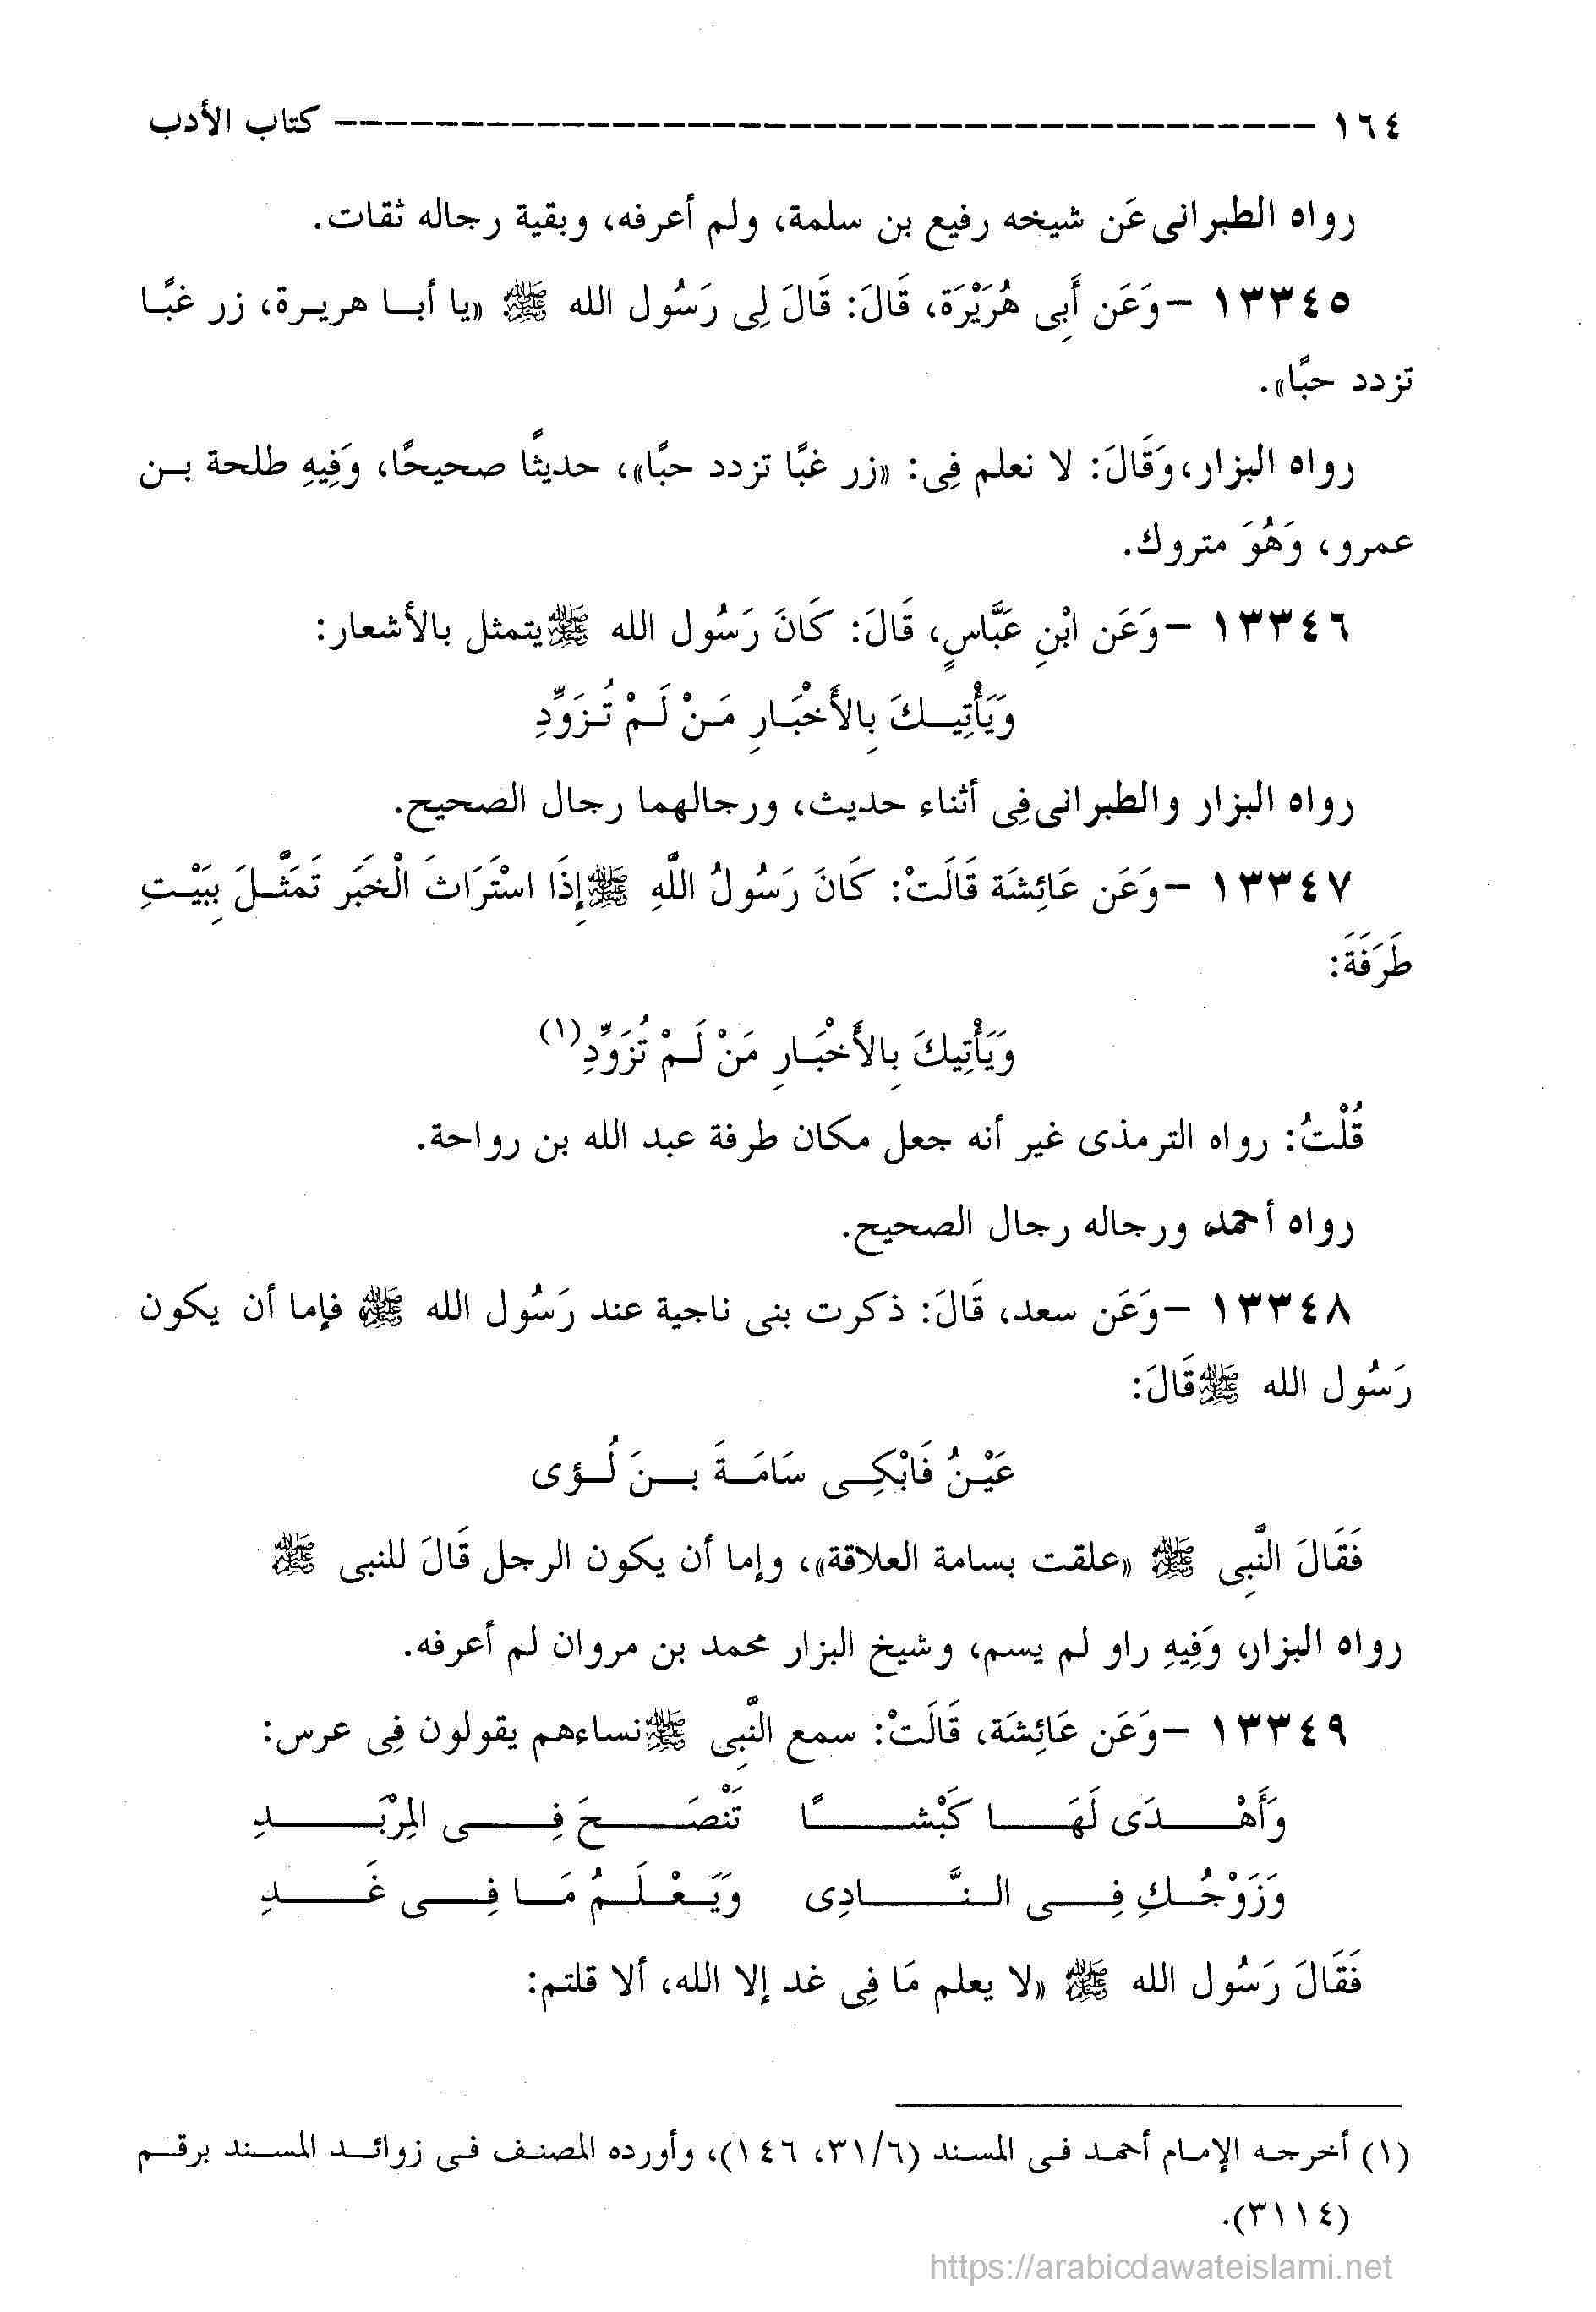 ١٦٤ ------------------------------------- كتاب الأدب
رواه الطبرانى عَن شيخه رفيع بن سلمة، ولم أعرفه، وبقية رجاله ثقات.
١٣٣٤٥ - وَعَن أَبِى هُرَيْرَة، قَالَ: قَالَ لِى رَسُول الله ﷺ «يا أبا هريرة، زر غبًا
تزدد حبًا».
رواه البزار، وَقَالَ: لا نعلم فِى: «زر غبًا تزدد حبًا»، حديثًا صحيحًا، وَفِيهِ طلحة بن
عمرو، وَهُوَ متروك.
١٣٣٤٦ - وَعَن ابْنِ عَبَّاسٍ، قَالَ: كَانَ رَسُول الله ﷺ يتمثل بالأشعار:
وَيَأْتِيكَ بِالأَخْبَارِ مَنْ لَمْ تُزَوِّدِ
رواه البزار والطبرانى فِى أثناء حديث، ورجالهما رجال الصحيح.
١٣٣٤٧ - وَعَن عَائِشَة قَالَتْ: كَانَ رَسُولُ اللَّهِ ﷺ إِذَا اسْتَرَاثَ الْخَبَر تَمَثَّلَ بِبَيْتِ
طَرَفَةَ:
وَيَأْتِيكَ بِالأَخْبَارِ مَنْ لَمْ تُزَوِّدِ(١)
قُلْتُ: رواه الترمذى غير أنه جعل مكان طرفة عبد الله بن رواحة.
رواه أحمد، ورجاله رجال الصحيح.
١٣٣٤٨ - وَعَن سعد، قَالَ: ذكرت بنى ناجية عند رَسُول الله ﷺ فإما أن يكون
رَسُول الله ﷺ قَالَ:
عَيْنُ فَابْكِى سَامَةَ بنَ لُؤى
فَقَالَ النَّبِى ﷺ «علقت بسامة العلاقة»، وإما أن يكون الرجل قَالَ للنبى ﷺ
رواه البزار، وَفِيهِ راو لم يسم، وشيخ البزار محمد بن مروان لم أعرفه.
١٣٣٤٩ - وَعَن عَائِشَة، قَالَتْ: سمع النَّبِى ﷺ نساءهم يقولون فِى عرس:
وَأَهْدَى لَهَا كَبْشًا تَنْصَحَ فِى المِرْبَدِ
وَزَوْجُكِ فِى النَّادِى وَيَعْلَمُ مَا فِى غَدِ
فَقَالَ رَسُول الله ﷺ «لا يعلم مَا فِى غد إلا الله، ألا قلتم:
(١) أخرجه الإمام أحمد فى المسند (٣١/٦، ١٤٦)، وأورده المصنف فى زوائد المسند برقم
(٣١١٤).
https://arabicdawateislami.net